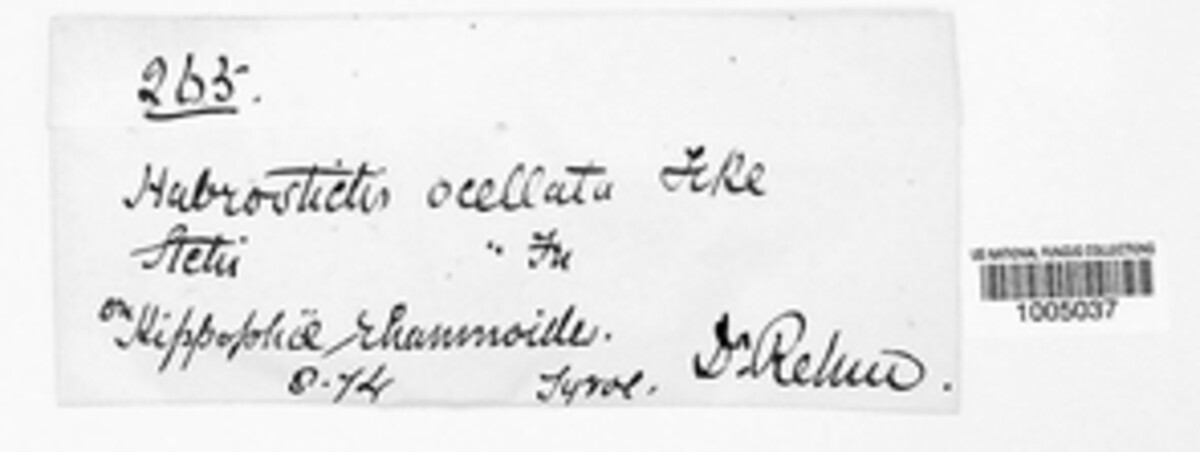 265.
Habrostictis ocellata Fckl
Stictis " Fr
on Hippophäe rhamnoide.
8-74 Tyrol. Dr Rehm.
US NATIONAL FUNGUS COLLECTIONS
1005037